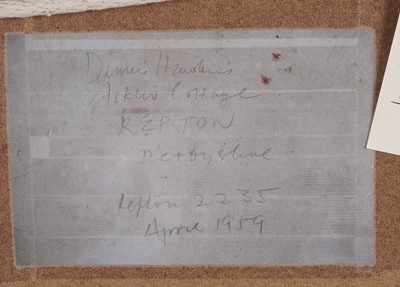 Dennis Hawkins
Askew Cottage
REPTON
Derbyshire
Repton 2235
April 1959